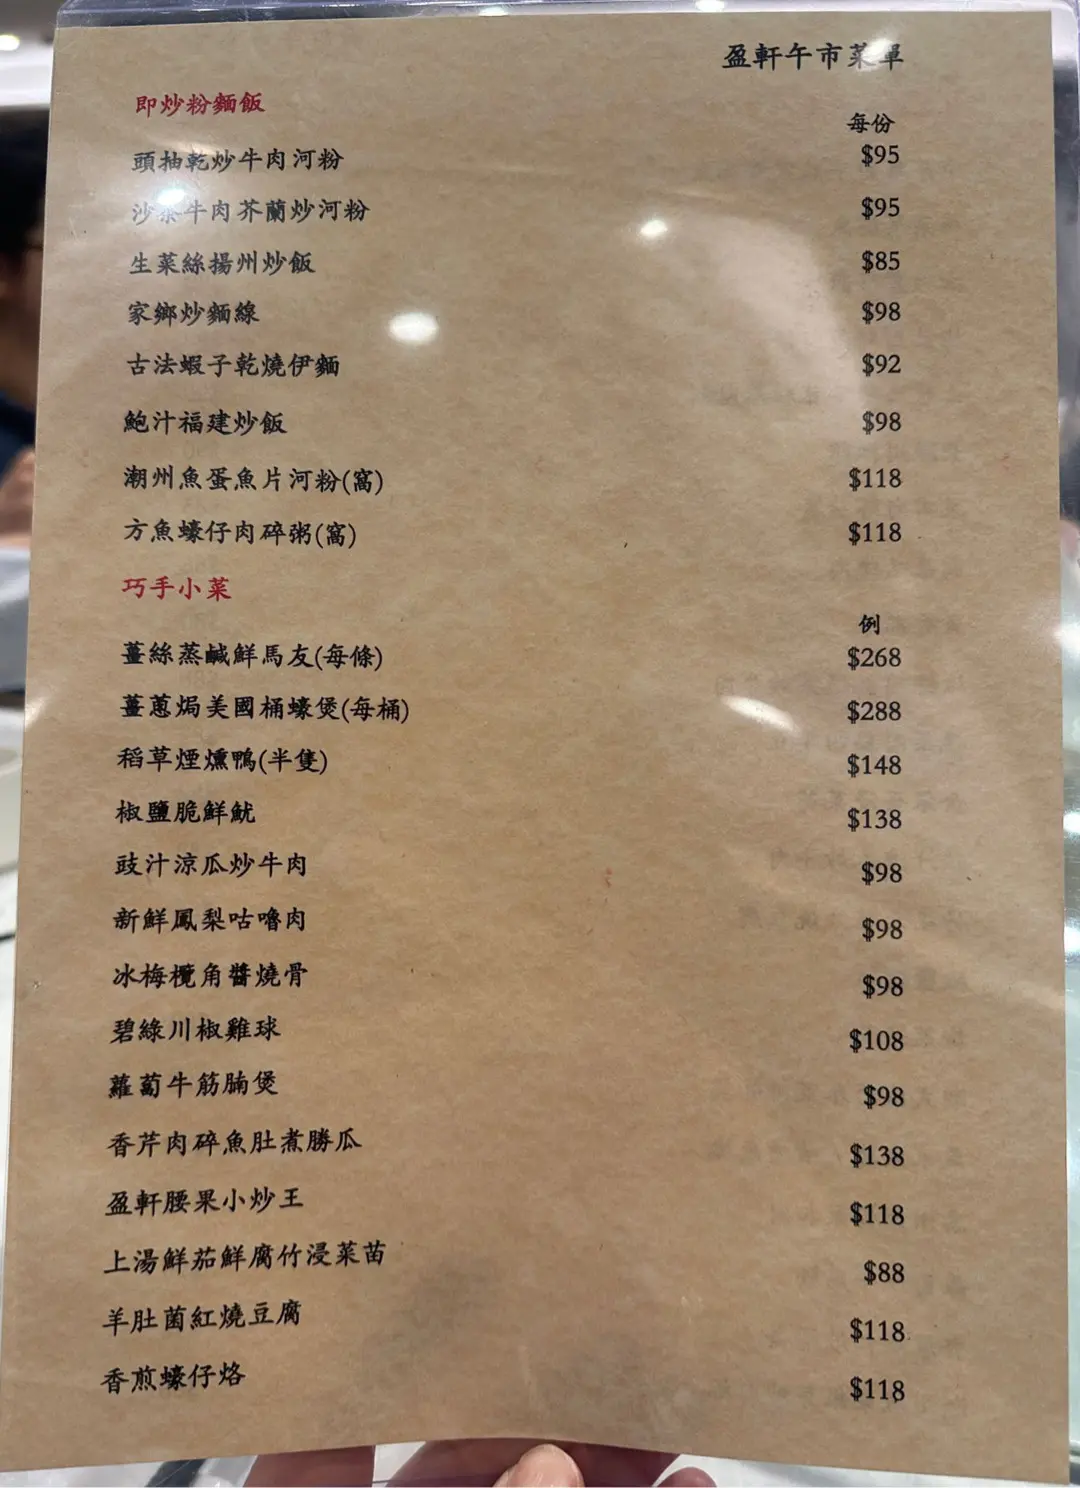 盈軒午市菜單
即炒粉麵飯
每份
頭抽乾炒牛肉河粉 $95
沙茶牛肉芥蘭炒河粉 $95
生菜絲揚州炒飯 $85
家鄉炒麵線 $98
古法蝦子乾燒伊麵 $92
鮑汁福建炒飯 $98
潮州魚蛋魚片河粉(窩) $118
方魚蠔仔肉碎粥(窩) $118
巧手小菜
例
薑絲蒸鹹鮮馬友(每條) $268
薑蔥焗美國桶蠔煲(每桶) $288
稻草煙燻鴨(半隻) $148
椒鹽脆鮮魷 $138
豉汁涼瓜炒牛肉 $98
新鮮鳳梨咕嚕肉 $98
冰梅欖角醬燒骨 $98
碧綠川椒雞球 $108
蘿蔔牛筋腩煲 $98
香芹肉碎魚肚煮勝瓜 $138
盈軒腰果小炒王 $118
上湯鮮茄鮮腐竹浸菜苗 $88
羊肚菌紅燒豆腐 $118
香煎蠔仔烙 $118